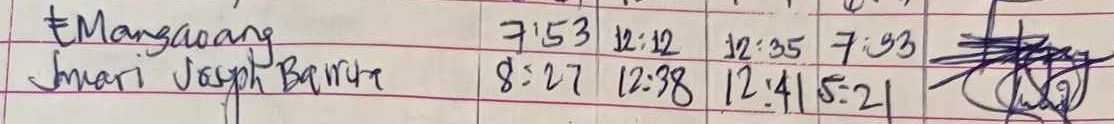 EMangaoang 7:53 12:12 12:35 7:33
Jmari Joseph 8:27 12:38 12:41 5:21